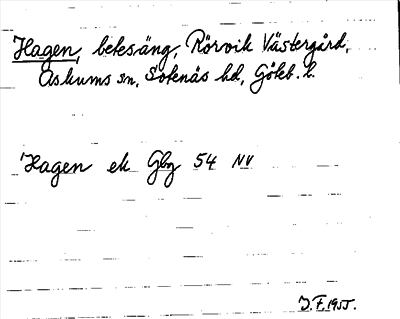 Hagen, betesäng, Rörvik Västergård,
Askums sn, Sotenäs hd, Göteb. l.
Hagen ek Gbg 54 NV
J.F. 1955.